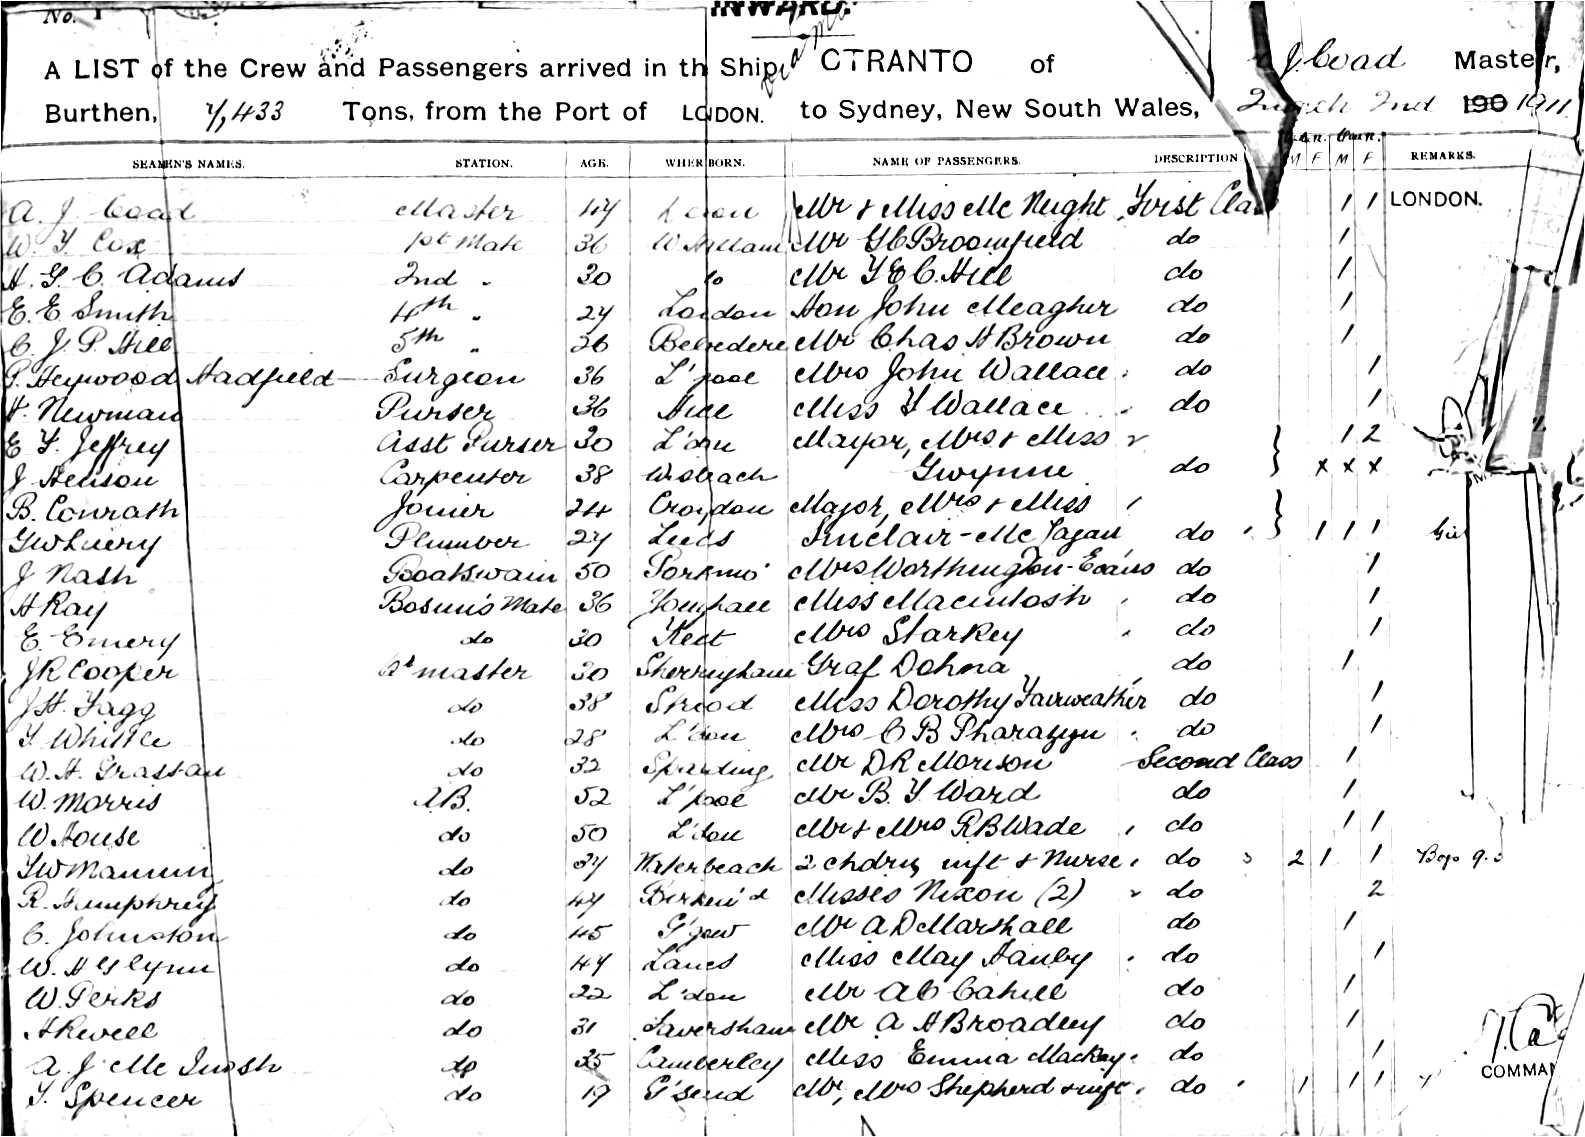 No. 1
INWARD.
A LIST of the Crew and Passengers arrived in th Ship OTRANTO of A J. Coad Master,
Burthen, 7,433 Tons, from the Port of LONDON. to Sydney, New South Wales, March 2nd 190 1911.
SEAMEN'S NAMES. STATION. AGE. WHERE BORN. NAME OF PASSENGERS. DESCRIPTION M F M F REMARKS.
A. J. Coad Master 47 Mr & Miss Mc Neight First Class 1 1 LONDON.
W. F. Cox 1st Mate 36 Mr G C Broomfield do 1
H. G. C. Adams 2nd " 30 do Mr F E C Hill do 1
E. E. Smith 4th " 27 London Hon John Meagher do 1
C. J. P. Hill 5th " 26 Belvedere Mr Chas H Brown do 1
P. Heywood Hadfield Surgeon 36 L'pool Mrs John Wallace do 1
H. Newman Purser 36 Hull Miss F Wallace do 1
E F. Jeffrey Asst Purser 30 L'don Mayor, Mrs & Miss 1 2
J Henson Carpenter 38 Wisbeach Gwynne do x x x
B. Conrath Joiner 24 Croydon Major, Mrs & Miss
Plumber 27 Leeds Sinclair-Mc Tagart do 1 1 1
J Nash Boatswain 50 Mrs Worthington-Evans do 1
H Ray Bosun's Mate 36 Miss Macintosh do 1
E. Emery do 30 Kent Mrs Starkey do 1
J R Cooper Qr master 30 Sherringham Graf Dohna do 1
J H. Fagg do 38 Strood Miss Dorothy Fairweather do 1
F. Whittle do 28 L'don Mrs C B Pharazyn do 1
W. H. Grassan do 32 Spalding Mr D R Morison Second Class 1
W. Morris AB. 52 L'pool Mr B. F. Ward do 1
W House do 50 L'don Mr & Mrs R B Wade do 1 1
do 37 Waterbeach 2 chdrn, inft & Nurse do 2 1 1 Boys 9.5
R. Humphrey do 47 Birken'd Misses Nixon (2) do 2
C. Johnston do 45 G'gow Mr A D Marshall do 1
W. H Glynn do 47 Lancs Miss May Hanby do 1
W. Perks do 22 L'don Mr A C Cahill do 1
H Rwell do 31 Faversham Mr A H Broadley do 1
A. J Mc Intosh do 35 Camberley Miss Emma Mackay do 1
F. Spencer do 19 G'send Mr, Mrs Shepherd & inft do 1 1 1
COMMAN